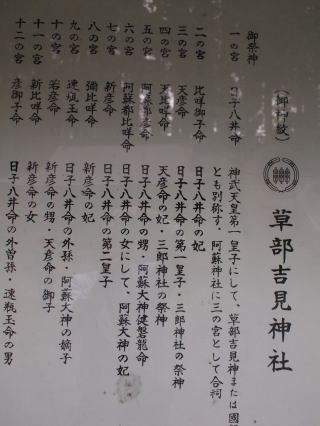 草部吉見神社
(御神紋)
御祭神
一の宮 日子八井命 神武天皇第一皇子にして、草部吉見神または國
とも別称す、阿蘇神社に三の宮として合祀
二の宮 比咩御子命 日子八井命の妃
三の宮 天彦命 日子八井命の第一皇子・三郎神社の祭神
四の宮 天比咩命 天彦命の妃・三郎神社の祭神
五の宮 阿蘇都彦命 日子八井命の甥・阿蘇大神健磐龍命
六の宮 阿蘇都比咩命 日子八井命の女にして、阿蘇大神の妃
七の宮 新彦命 日子八井命の第二皇子
八の宮 彌比咩命 新彦命の妃
九の宮 速瓶玉命 日子八井命の外孫・阿蘇大神の嫡子
十の宮 若彦命 新彦命の甥・天彦命の御子
十一の宮 新比咩命 新彦命の女
十二の宮 彦御子命 日子八井命の外曽孫・速瓶玉命の男